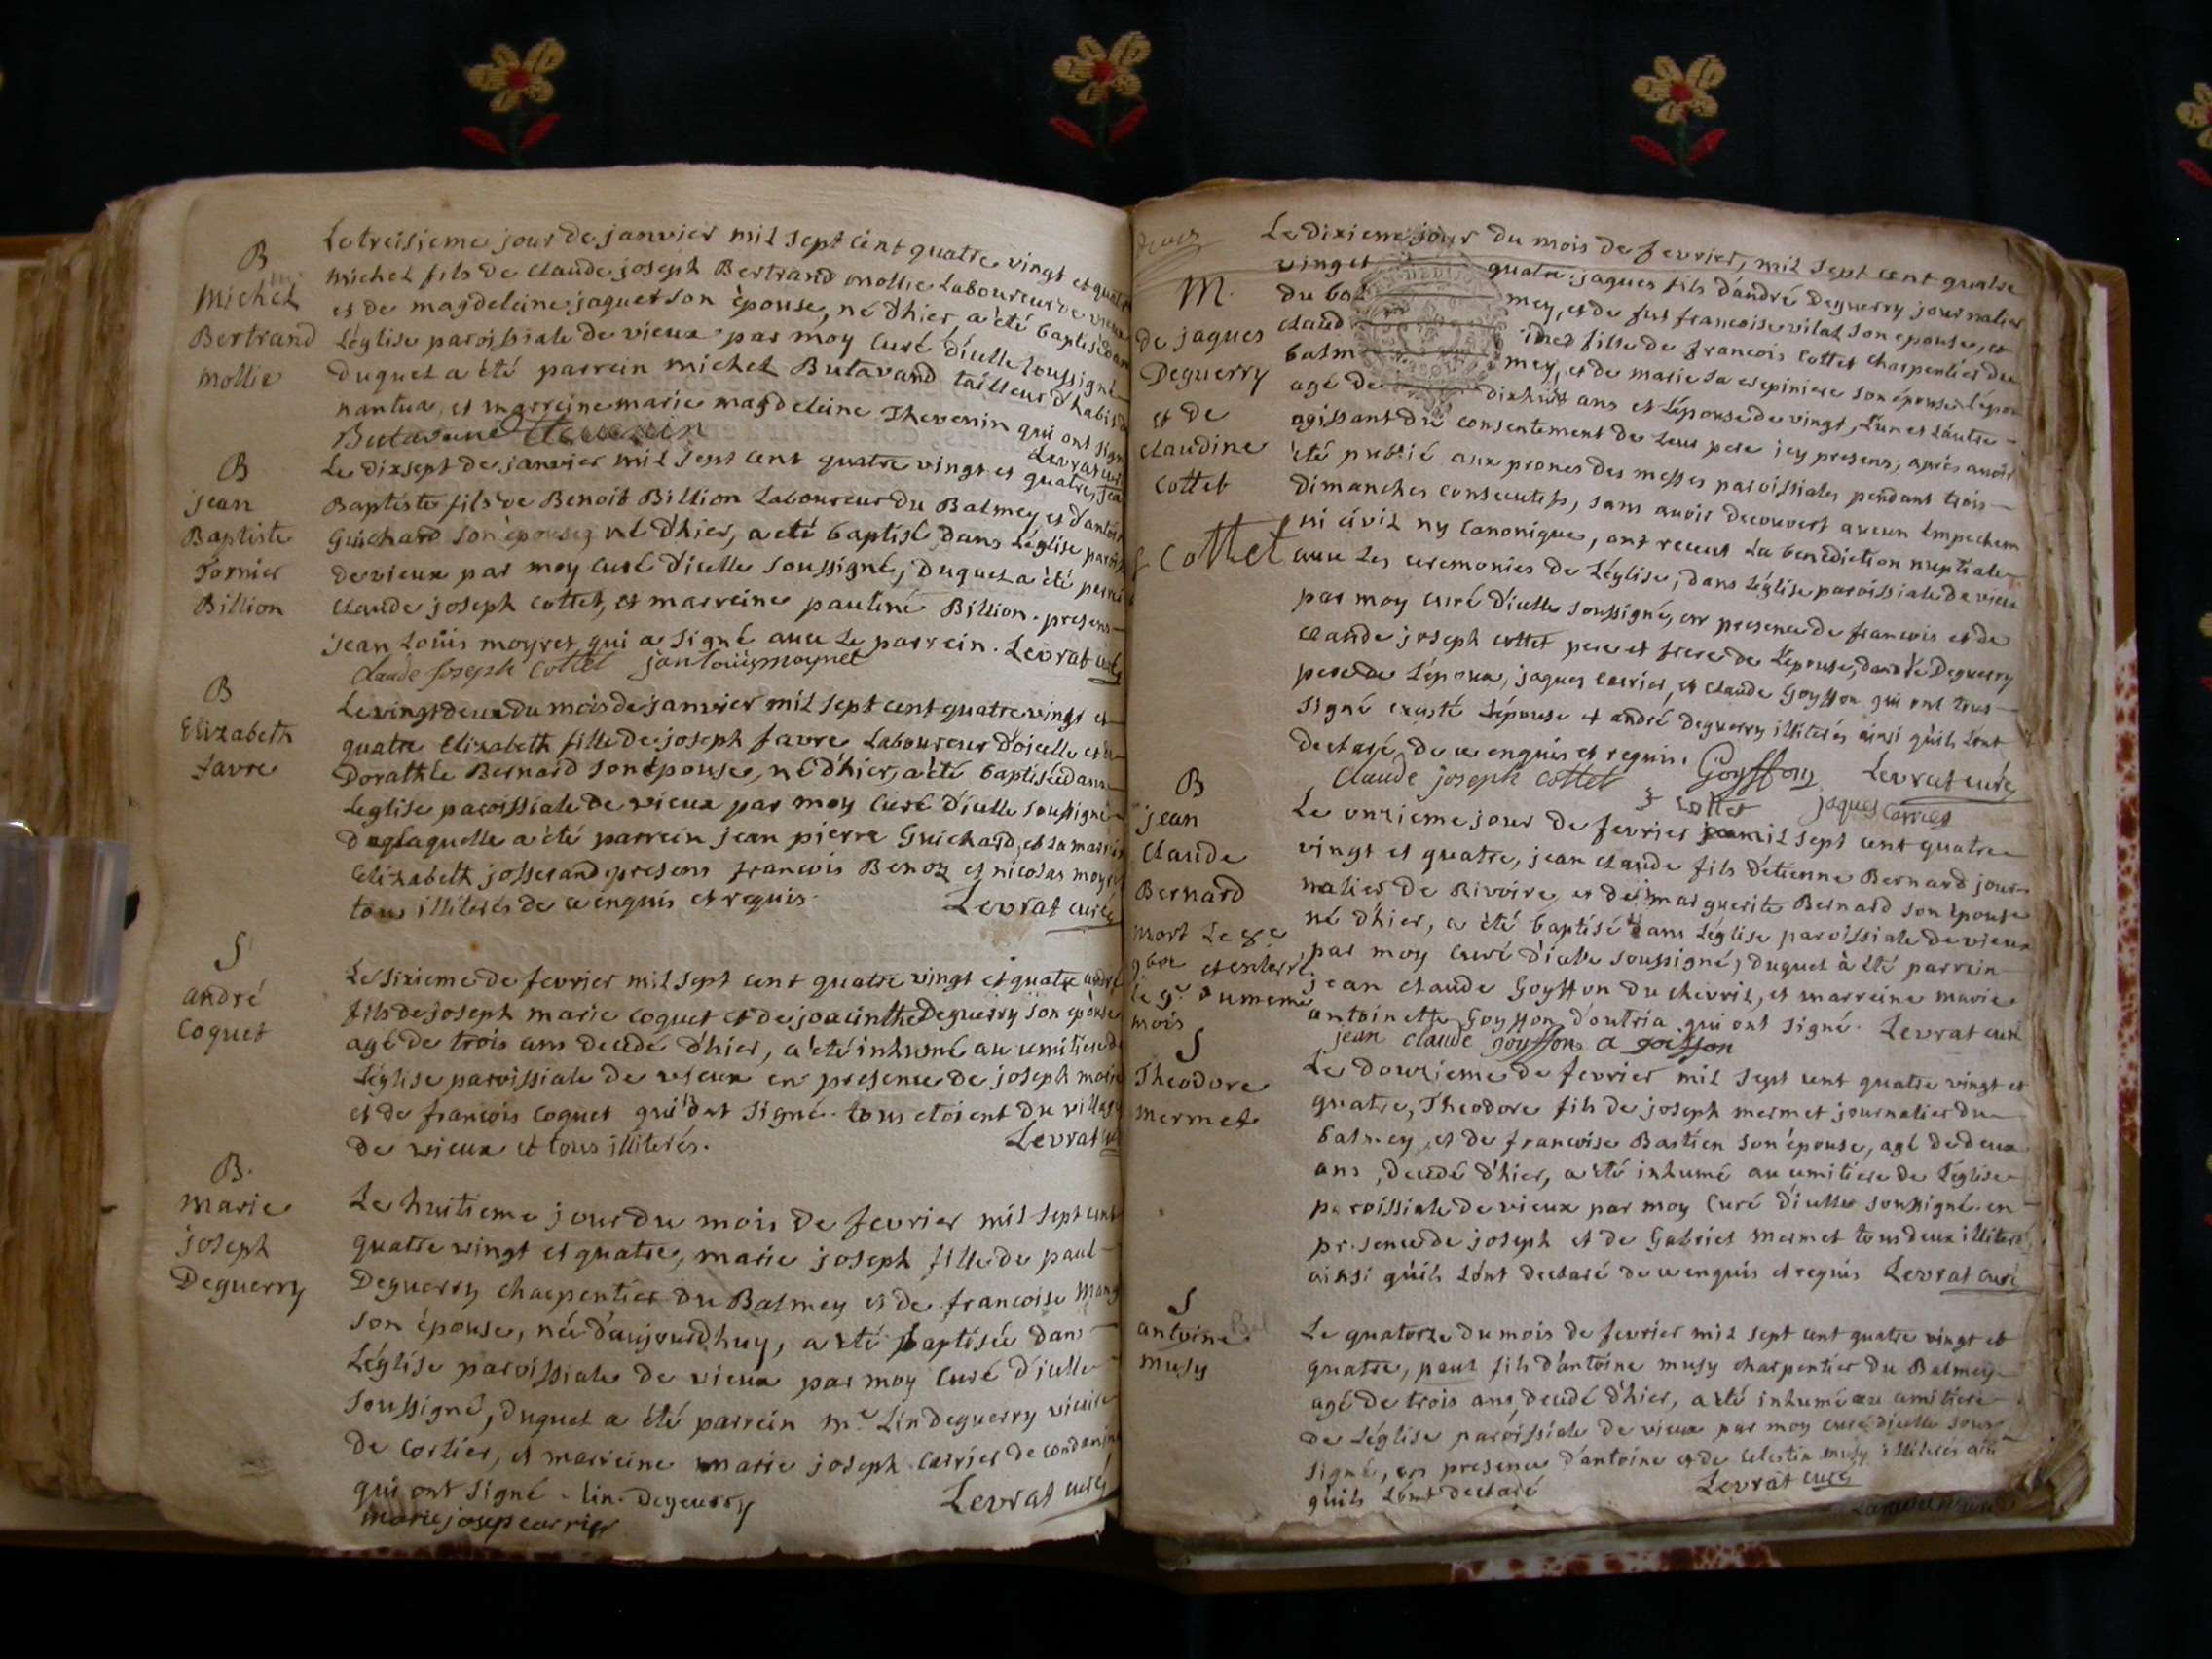 B
Michel
Bertrand
mollie
Le treisieme jour de janvier mil sept cent quatre vingt et quatre
michel fils de claude joseph Bertrand mollie Laboureur de vieux
et de magdeleine jaquet son épouse, né d'hier, a été baptisé dans
Léglise paroissiale de vieux par moy Curé d'icelle soussigné
duquel a été parrein michel Butavand tailleur d'habis de
nantua, et marreine marie magdeleine Thevenin qui ont signé
Butavand Thevenin
Levrat curé
B
jean
Baptiste
Tornier
Billion
Le dixsept de janvier mil sept cent quatre vingt et quatre, jean
Baptiste fils de Benoit Billion Laboureur du Balmey et d'antoin
Guichard son épouse, né d'hier, a eté baptisé dans Léglise parois
de vieux par moy Curé d'icelle soussigné, duquel a été parrei
claude joseph cottet, et marreine pauline Billion. presens
jean Loüis moyret qui a signé avec Le parrein. Levrat curé
claude joseph cottet jan louis moynet
B
Elizabeth
favre
Le vingt deux du mois de janvier mil sept cent quatre vingt et
quatre Elizabeth fille de joseph favre Laboureur d'oicelle et de
Dorathée Bernard son épouse, né d'hier, a été baptisée dans
Leglise paroissiale de vieux par moy Curé d'icelle soussigné
Laquelle a été parrein jean pierre Guichard, et La marreine
Elizabeth josserand presens francois Benoz et nicolas moyret
tous illiterés de ce enquis et requis.
Levrat curé
S
andré
Coquet
Le sixieme de fevrier mil sept cent quatre vingt et quatre andré
fils de joseph marie coquet et de joacinthe Deguerry son épouse
agé de trois ans decedé d'hier, a été inhumé au cemitiere de
Léglise paroissiale de vieux en presence de joseph marie
et de françois coquet qui n'ont signé. tous etoient du village
de vieux et tous illiterés.
Levrat curé
B.
Marie
joseph
Deguerry
Le huitieme jour du mois de fevrier mil sept cent
quatre vingt et quatre, marie joseph fille de paul
Deguerry charpentier du Balmey et de francoise Mang
son épouse, née d'aujourdhuy, a été baptisée dans
Léglise paroissiale de vieux par moy Curé d'icelle
soussigné, duquel a été parrein mr. Lin deguerry vicaire
de Corlier, et marreine marie joseph Carrier de condamine
qui ont signé. lin. deguerry
Levrat curé
marie josep carrier
M.
de jaques
Deguerry
et de
claudine
cottet
Le dixieme jour du mois de fevrier, mil sept cent quatre
vingt et quatre jaques fils d'andré Deguerry journalier
du bal mey, et de fut francoise vilat son epouse, et
claud ines fille de francois Cottet charpentier du
balm mey, et de marie La serpiniere son épouse, l'épou
agé de dixhuit ans et L'épouse de vingt, L'un et L'autre
agissant du consentement de leur pere jcy presens, aprés avoir
été publié aux prones des messes paroissiales pendant trois
dimanches consecutifs, sans avoir decouvert aucun Empechem
ni civil ny Canonique, ont receus La benediction nuptiale
f Cottet avec Les ceremonies de Léglise, dans Léglise paroissiale de vieux
par moy curé d'icelle soussigné, en presence de francois et de
claude joseph cottet pere et frere de L'épouse, d'andré Deguerry
pere de L'époux, jaques Carrier, et claude Goyffon qui ont tous
signé excepté L'épouse et andré deguerry illiterés ainsi qu'ils L'ont
declaré, de ce enquis et requis.
claude joseph cottet Goyffon Levrat curé
f cottet jaques carrier
B
jean
claude
Bernard
mort Le 8e
9bre et enterré
le 9e du meme
mois
Le onzieme jour de fevrier mil sept cent quatre
vingt et quatre, jean claude fils d'étienne Bernard jour
nalier de Rivoire et de marguerite Bernard son épouse
né d'hier, a été baptisé dans Léglise paroissiale de vieux
par moy curé d'icelle soussigné, duquel à été parrein
jean claude Goyffon du chevril, et marreine marie
antoinette Goyffon d'outria qui ont signé. Levrat curé
jean claude goyffon a goiffon
S
Theodore
mermet
Le douzieme de fevrier mil sept cent quatre vingt et
quatre, Theodore fils de joseph mermet journalier du
balmey, et de francoise Bastien son épouse, agé de deux
ans, decedé d'hier, a été inhumé au cemitiere de Léglise
paroissiale de vieux par moy Curé d'icelle soussigné en
presence de joseph et de Gabriel mermet tous deux illiterés
ainsi qu'ils L'ont declaré de ce enquis et requis Levrat curé
S
antoine
musy
Le quatorze du mois de fevrier mil sept cent quatre vingt et
quatre, paul fils d'antoine musy charpentier du Balmey
agé de trois ans, decedé d'hier, a été inhumé au cemitiere
de Léglise paroissiale de vieux par moy curé d'icelle sous
signé, en presence d'antoine et de Celestin musy illiterés ainsi
qu'ils L'ont declaré
Levrat curé